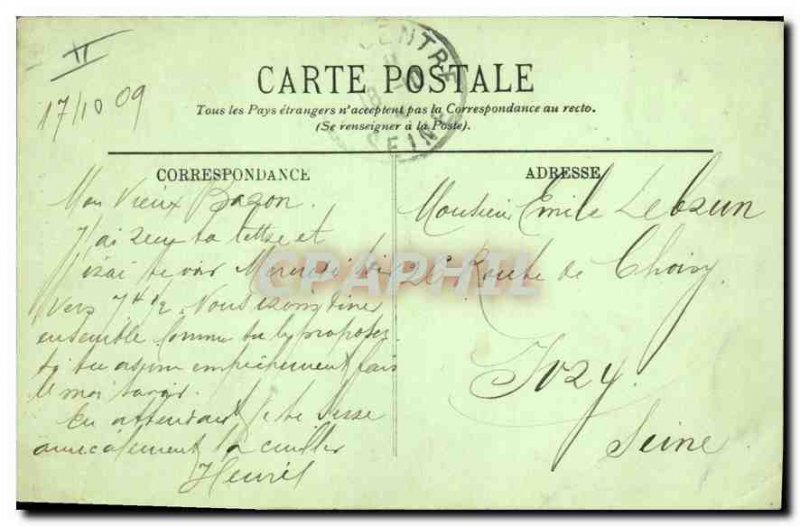 II
17/10 09
CENTRE
SEINE
CARTE POSTALE
Tous les Pays étrangers n'acceptent pas la Correspondance au recto.
(Se renseigner à la Poste).
CORRESPONDANCE
Mon Vieux
J'ai reçu ta lettre et
j'irai te voir Mercredi
vers 7h 1/2. Nous irons dîner
ensemble comme tu le proposes
si tu as un empêchement fais
le moi savoir.
En attendant je te serre
amicalement la
ADRESSE
Monsieur Emile Lebrun
26 Route de Choisy
Ivry.
Seine
CPAPHIL